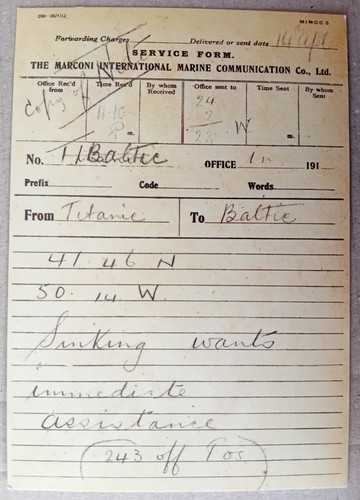 MIMCC 5
Forwarding Charges Delivered or sent date 14 apl
SERVICE FORM.
THE MARCONI INTERNATIONAL MARINE COMMUNICATION Co., Ltd.
Office Rec'd from Time Rec'd By whom Received Office sent to Time Sent By whom Sent
Copy of Note 11-10 P m. 24 W m.
No. 11 Baltic OFFICE 191
Prefix Code Words
From Titanic To Baltic
41. 46 N
50. 14 W.
Sinking wants
immediate
assistance
243 off Pos